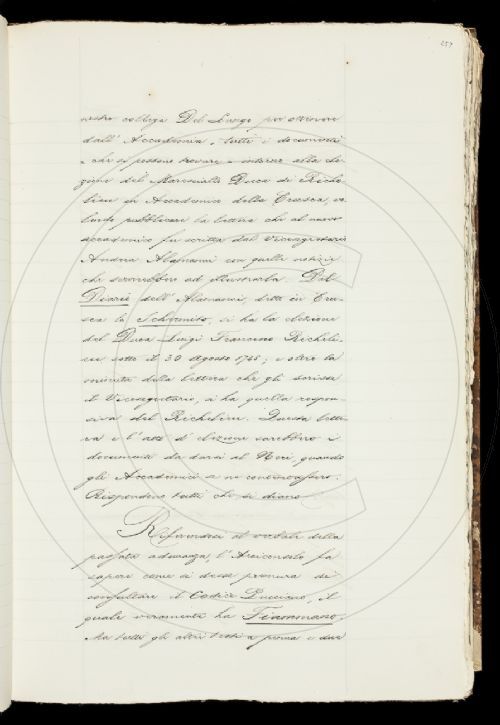 257
nostro collega Del Lungo per ottenere
dall' Accademia, tutti i documenti
che si possono trovare intorno alla ele-
zione del Maresciallo Duca di Riche-
lieu in Accademico della Crusca, vo-
lendo pubblicare la lettera che al nuovo
accademico fu scritta dal Vicesegretario
Andrea Alamanni con quelle notizie
che servirebbero ad illustrarla. Dal
Diario dell' Alamanni, detto in Cru-
sca lo Schermito, si ha la elezione
del Duca Luigi Francesco Richeli-
eu sotto il 30 Agosto 1745; e oltre la
minuta della lettera che gli scrisse
il Vicesegretario, si ha quella respon-
siva del Richelieu. Questa lette-
ra e l'atto d' elezione sarebbero i
documenti da darsi al Neri, quando
gli Accademici se ne contentassero.
Rispondono tutti che si diano.
Riferendosi al verbale della
passata adunanza, l'Arciconsolo fa
sapere come si desse premura di
consultare il Codice Pucciano, il
quale veramente ha Fiammano.
Ma tutti gli altri testi a penna e due